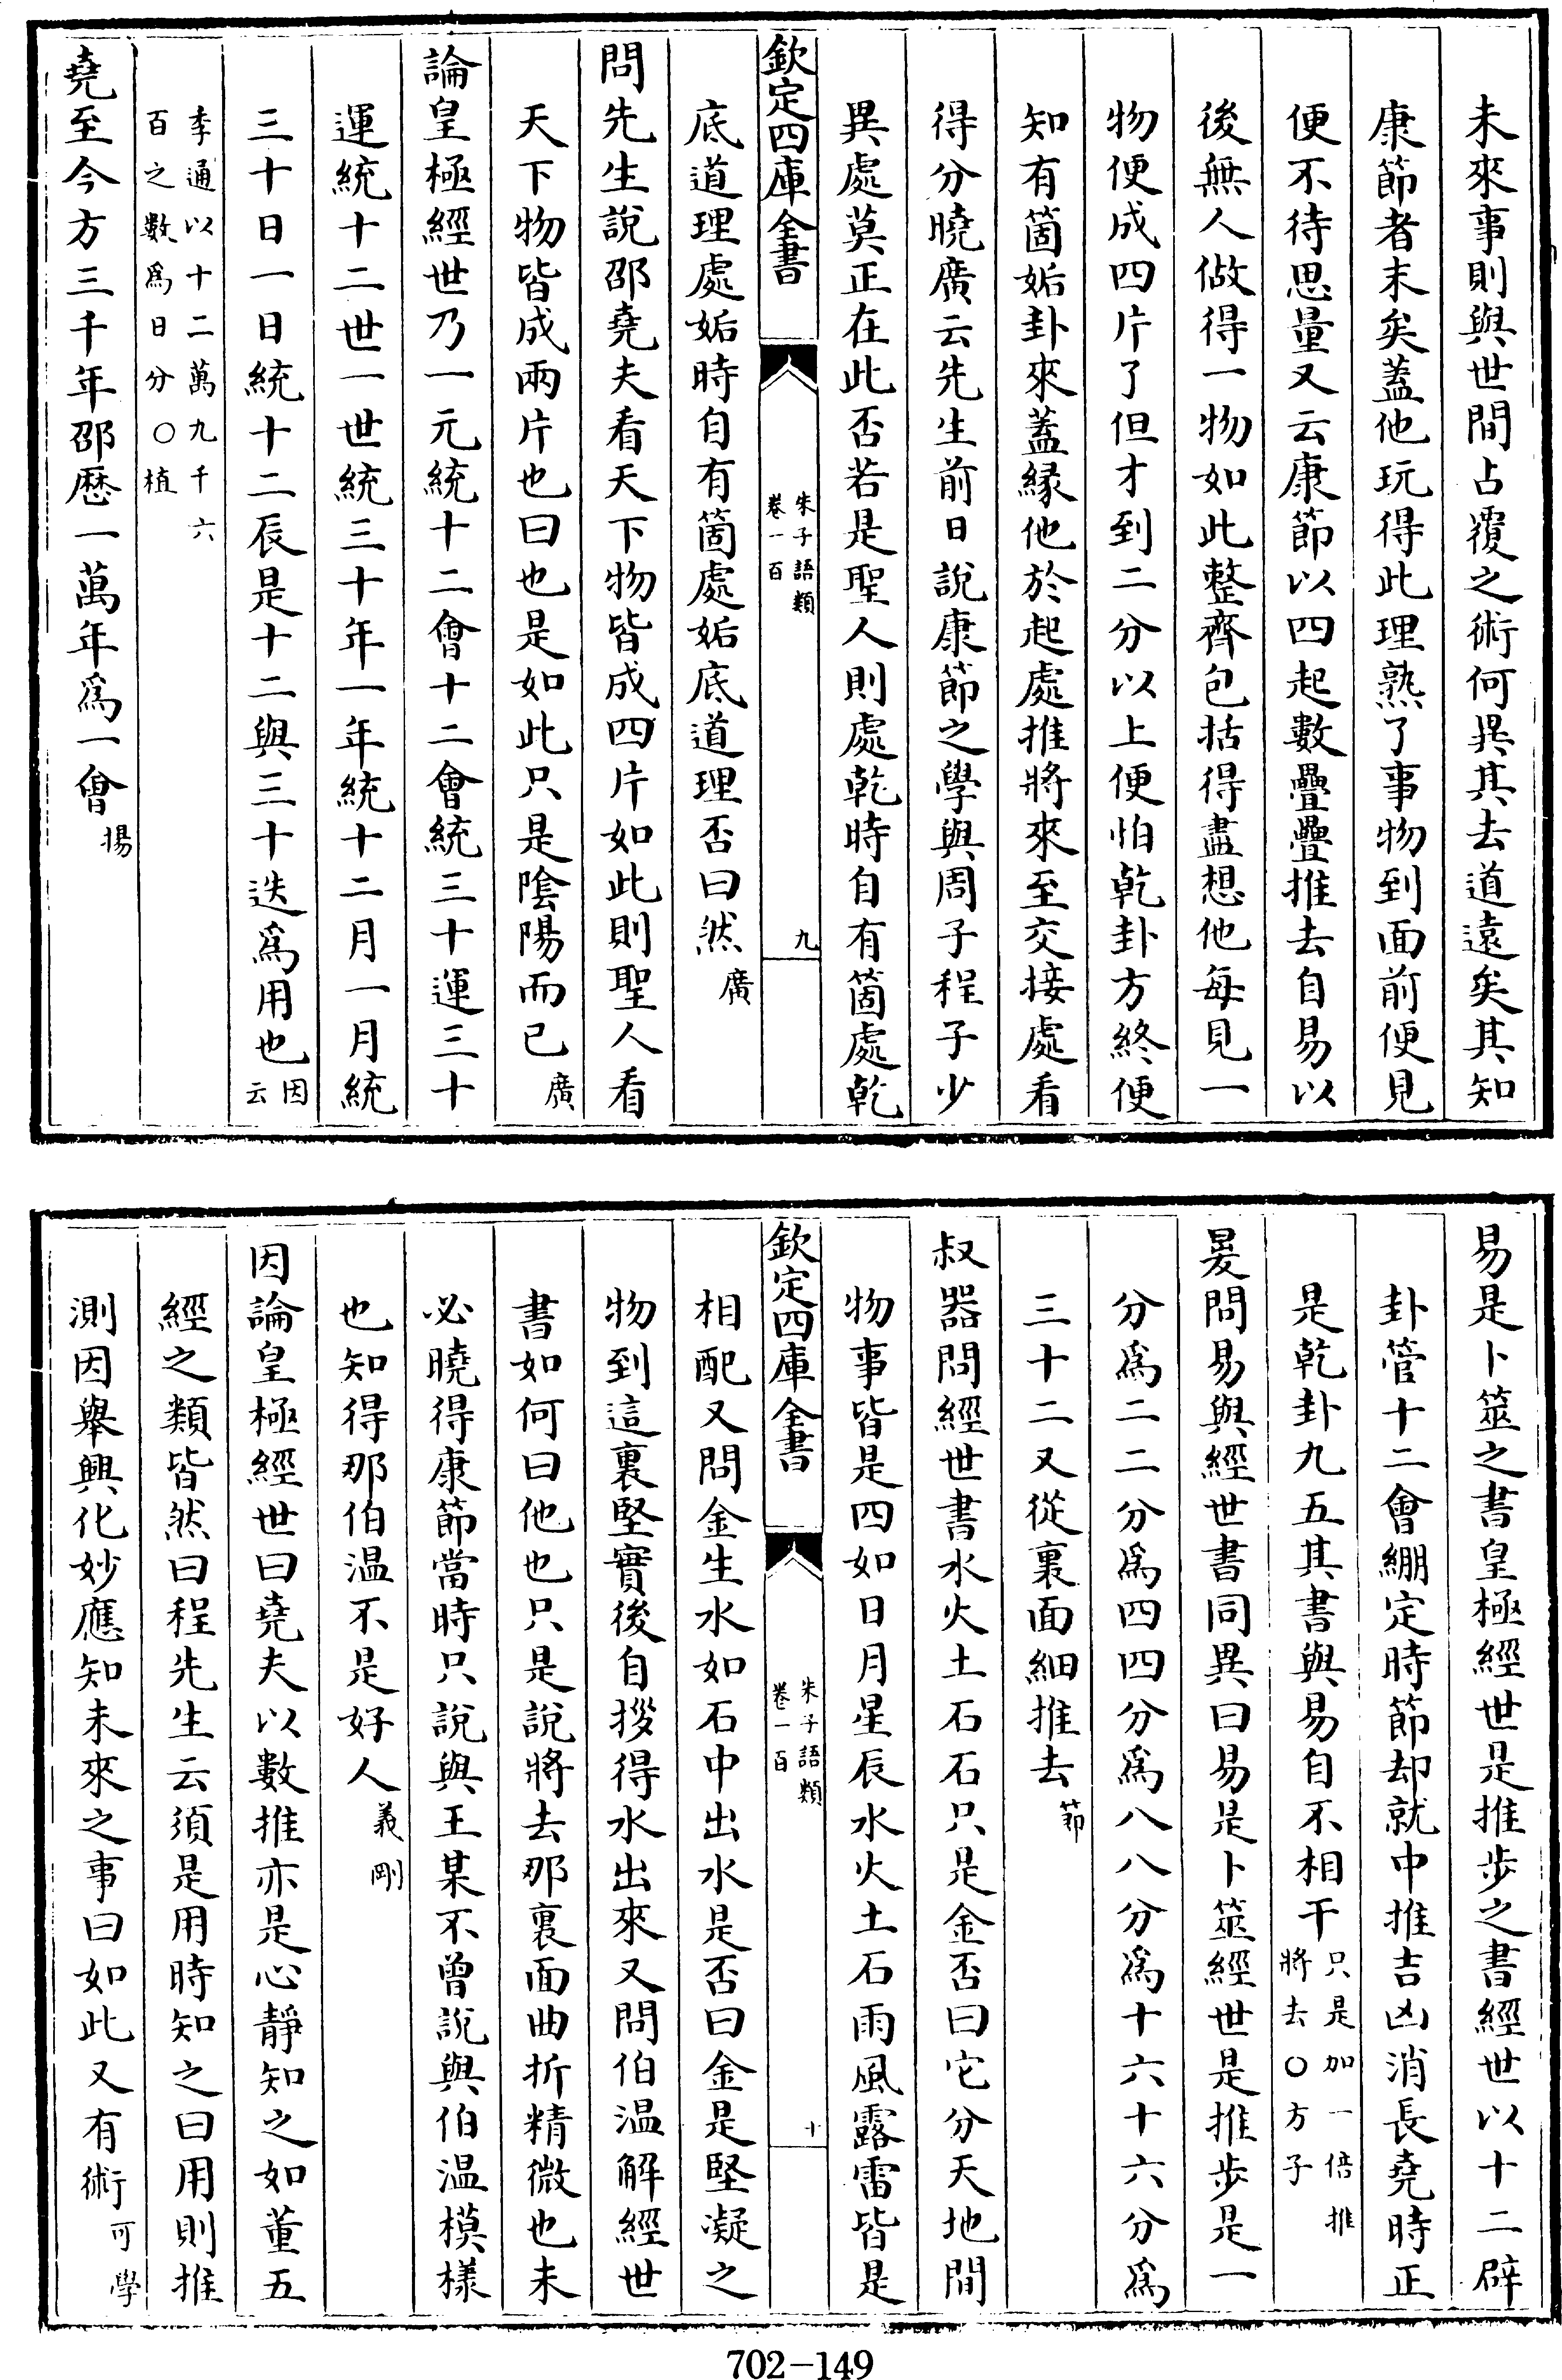 未來事則與世間占覆之術何異其去道遠矣其知
康節者末矣蓋他玩得此理熟了事物到面前便見
便不待思量又云康節以四起數疊疊推去自易以
後無人做得一物如此整齊包括得盡想他每見一
物便成四片了但才到二分以上便怕乾卦方終便
知有箇姤卦來蓋緣他於起處推將來至交接處看
得分曉廣云先生前日說康節之學與周子程子少
異處莫正在此否若是聖人則處乾時自有箇處乾
欽定四庫全書
朱子語類
卷一百
九
底道理處姤時自有箇處姤底道理否曰然廣
問先生說邵堯夫看天下物皆成四片如此則聖人看
天下物皆成兩片也曰也是如此只是陰陽而已廣
論皇極經世乃一元統十二會十二會統三十運三十
運統十二世一世統三十年一年統十二月一月統
三十日一日統十二辰是十二與三十迭爲用也因
云
季通以十二萬九千六
百之數爲日分〇植
堯至今方三千年邵歷一萬年爲一會揚
易是卜筮之書皇極經世是推步之書經世以十二辟
卦管十二會綳定時節却就中推吉凶消長堯時正
是乾卦九五其書與易自不相干只是加一倍推
將去〇方子
㬊問易與經世書同異曰易是卜筮經世是推步是一
分爲二二分爲四四分爲八八分爲十六十六分爲
三十二又從裏面細推去節
叔器問經世書水火土石石只是金否曰它分天地間
物事皆是四如日月星辰水火土石雨風露雷皆是
欽定四庫全書
朱子語類
卷一百
十
相配又問金生水如石中出水是否曰金是堅凝之
物到這裏堅實後自拶得水出來又問伯溫解經世
書如何曰他也只是說將去那裏面曲折精微也未
必曉得康節當時只說與王某不曾說與伯溫模樣
也知得那伯溫不是好人義剛
因論皇極經世曰堯夫以數推亦是心靜知之如董五
經之類皆然曰程先生云須是用時知之曰用則推
測因舉興化妙應知未來之事曰如此又有術可學
702-149